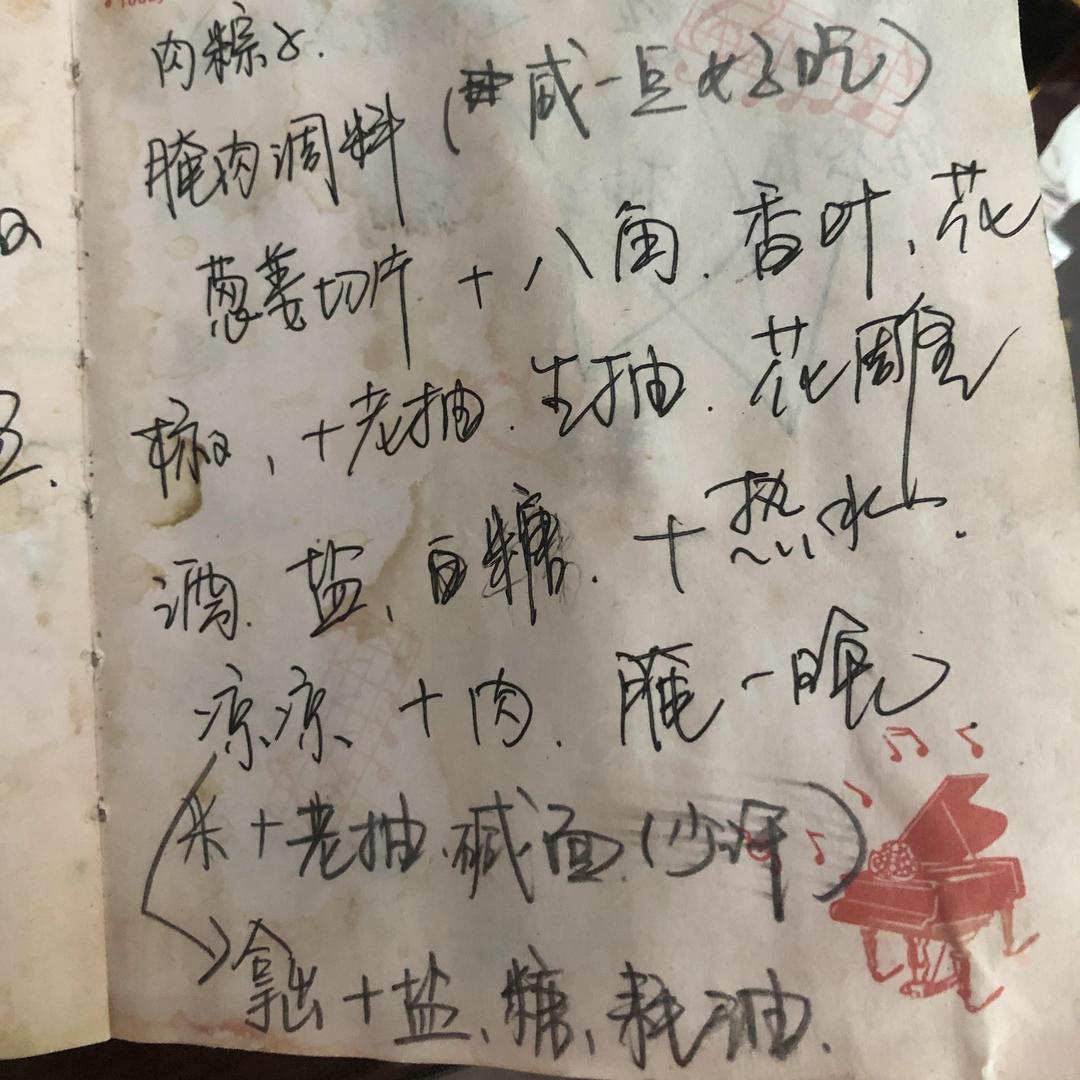 肉粽子.
腌肉调料 (咸一点好吃)
葱姜切片 + 八角. 香叶, 花
椒, +老抽. 生抽. 花雕
酒. 盐、白糖. +热水.
凉凉 +肉. 腌一晚
米+老抽.碱面(少许)
拿出+盐、糖、耗油.